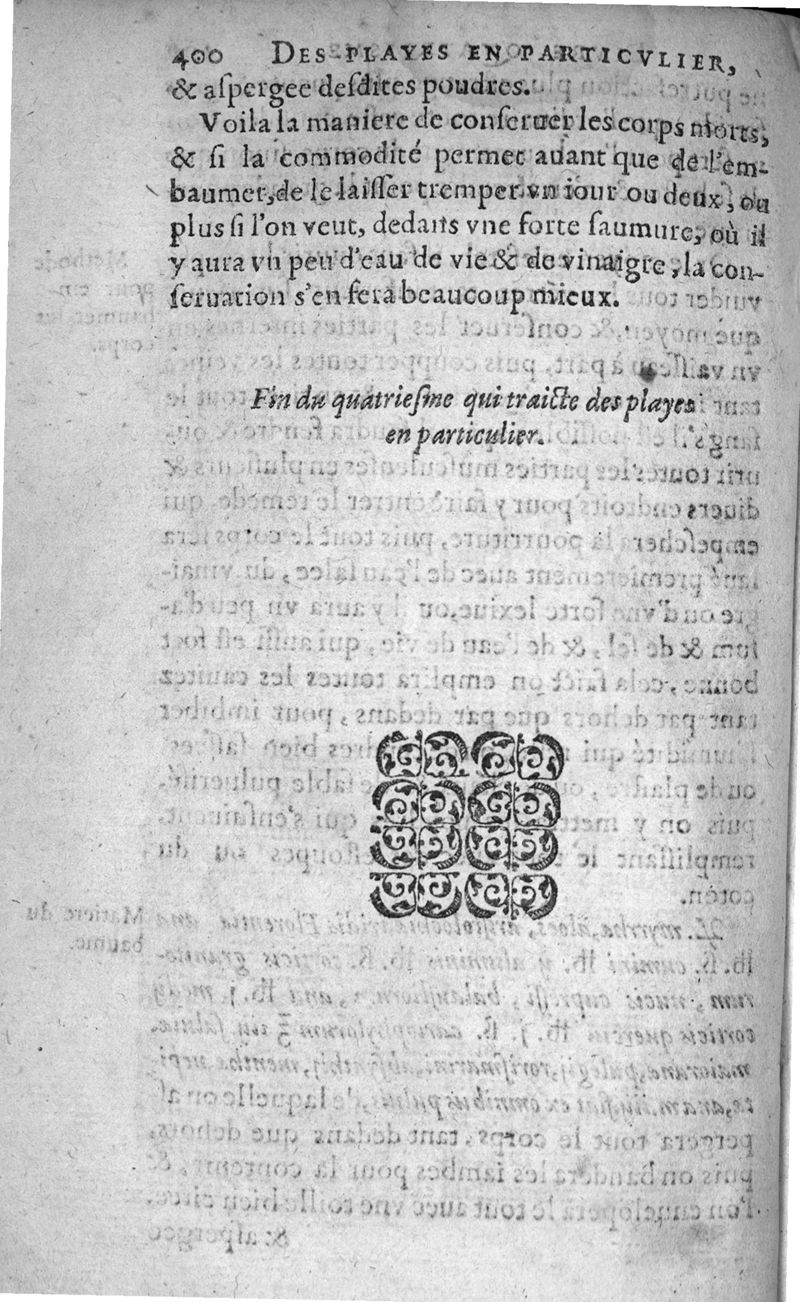 400 DES PLAYES EN PARTICVLIER,
& aſpergee deſdites poudres.
Voila la maniere de conſeruer les corps morts,
& ſi la commodité permet auant que de l'em-
baumer, de le laiſſer tremper vn iour ou deux, ou
plus ſi l'on veut, dedans vne forte ſaumure, où il
y aura vn peu d'eau de vie & de vinaigre, la con-
ſeruation s'en fera beaucoup mieux.
Fin du quatrieſme qui traicte des playes
en particulier.